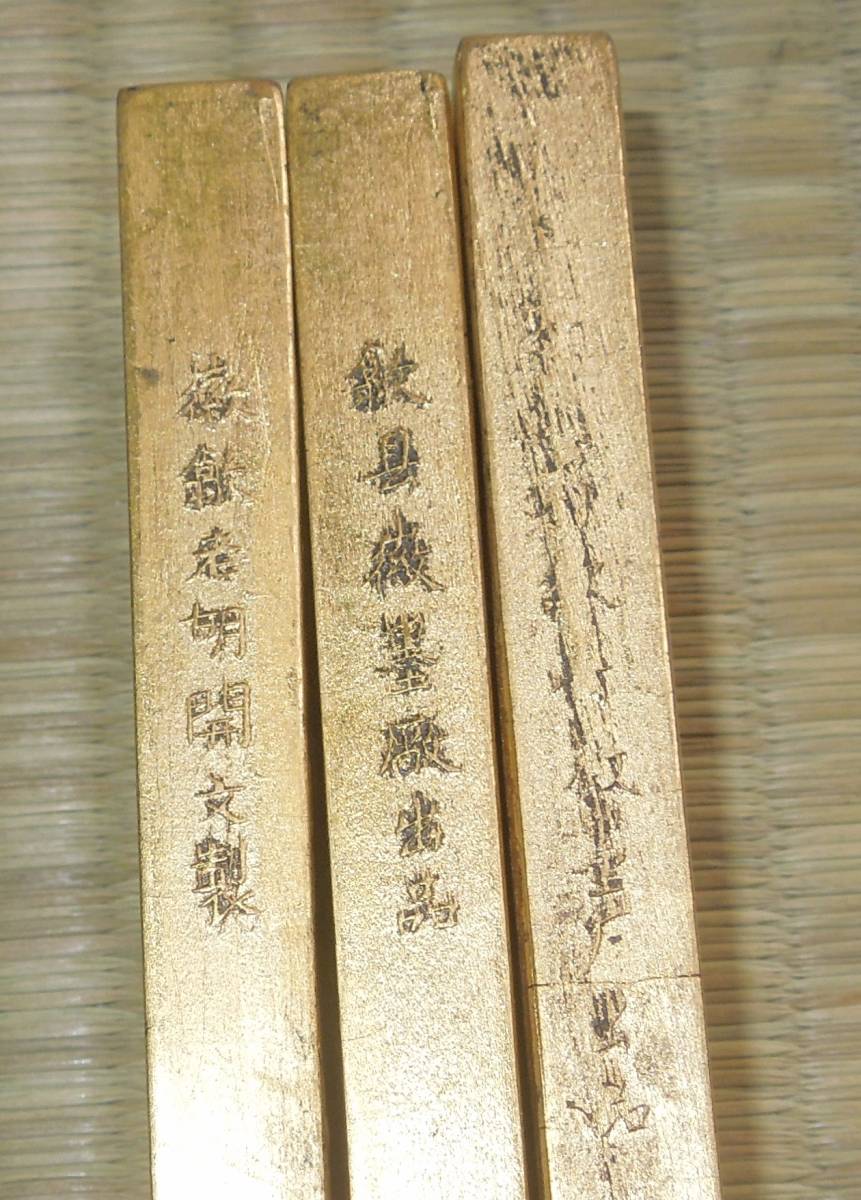 徽歙老胡開文製
歙县徽墨廠出品
厂出品